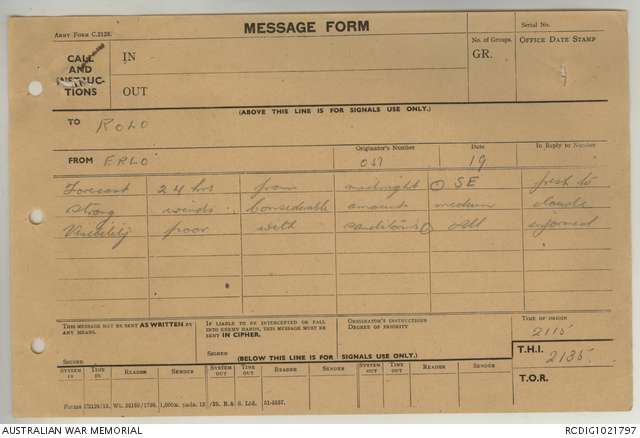 Army Form C.2128.
MESSAGE FORM
Serial No.
CALL AND INSTRUC-TIONS
IN
OUT
No. of Groups.
GR.
Office Date Stamp
(ABOVE THIS LINE IS FOR SIGNALS USE ONLY.)
TO ROLO
FROM ERLO
Originator's Number
Date 19
In Reply to Number
Forecast 24 hrs from midnight O SE fresh to
strong winds. Considerable amount medium clouds
poor with O All informed
THIS MESSAGE MAY BE SENT AS WRITTEN BY ANY MEANS.
SIGNED
IF LIABLE TO BE INTERCEPTED OR FALL INTO ENEMY HANDS, THIS MESSAGE MUST BE SENT IN CIPHER.
SIGNED
ORIGINATOR'S INSTRUCTIONS
DEGREE OF PRIORITY
TIME OF ORIGIN
2115
T.H.I. 2135.
T.O.R.
(BELOW THIS LINE IS FOR SIGNALS USE ONLY.)
SYSTEM IN TIME IN READER SENDER SYSTEM OUT TIME OUT READER SENDER SYSTEM OUT TIME OUT READER SENDER
AUSTRALIAN WAR MEMORIAL
RCDIG1021797